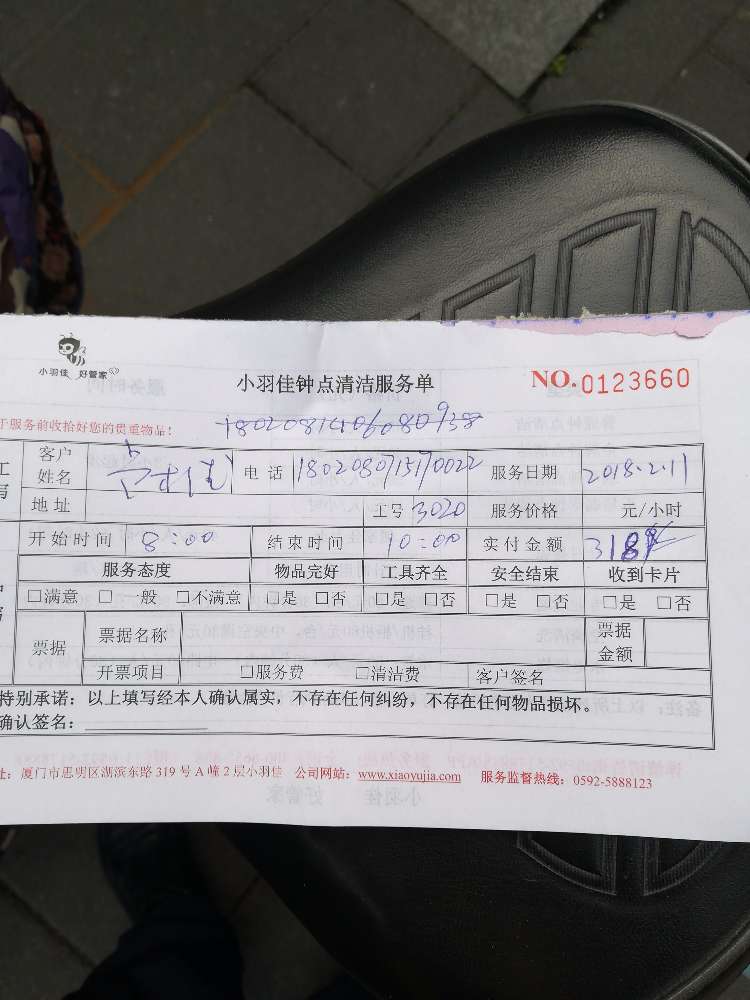 小羽佳 好管家
小羽佳钟点清洁服务单
NO.0123660
于服务前收拾好您的贵重物品!
客户姓名 电话 1802080715170022 服务日期 2018.2.11
地址 工号 3020 服务价格 元/小时
开始时间 8:00 结束时间 10:00 实付金额 318
服务态度 物品完好 工具齐全 安全结束 收到卡片
□满意 □一般 □不满意 □是 □否 □是 □否 □是 □否 □是 □否
票据 票据名称 票据金额
开票项目 □服务费 □清洁费 客户签名
特别承诺：以上填写经本人确认属实，不存在任何纠纷，不存在任何物品损坏。
确认签名：
址：厦门市思明区湖滨东路 319 号 A 幢 2 层小羽佳 公司网站：www.xiaoyujia.com 服务监督热线：0592-5888123